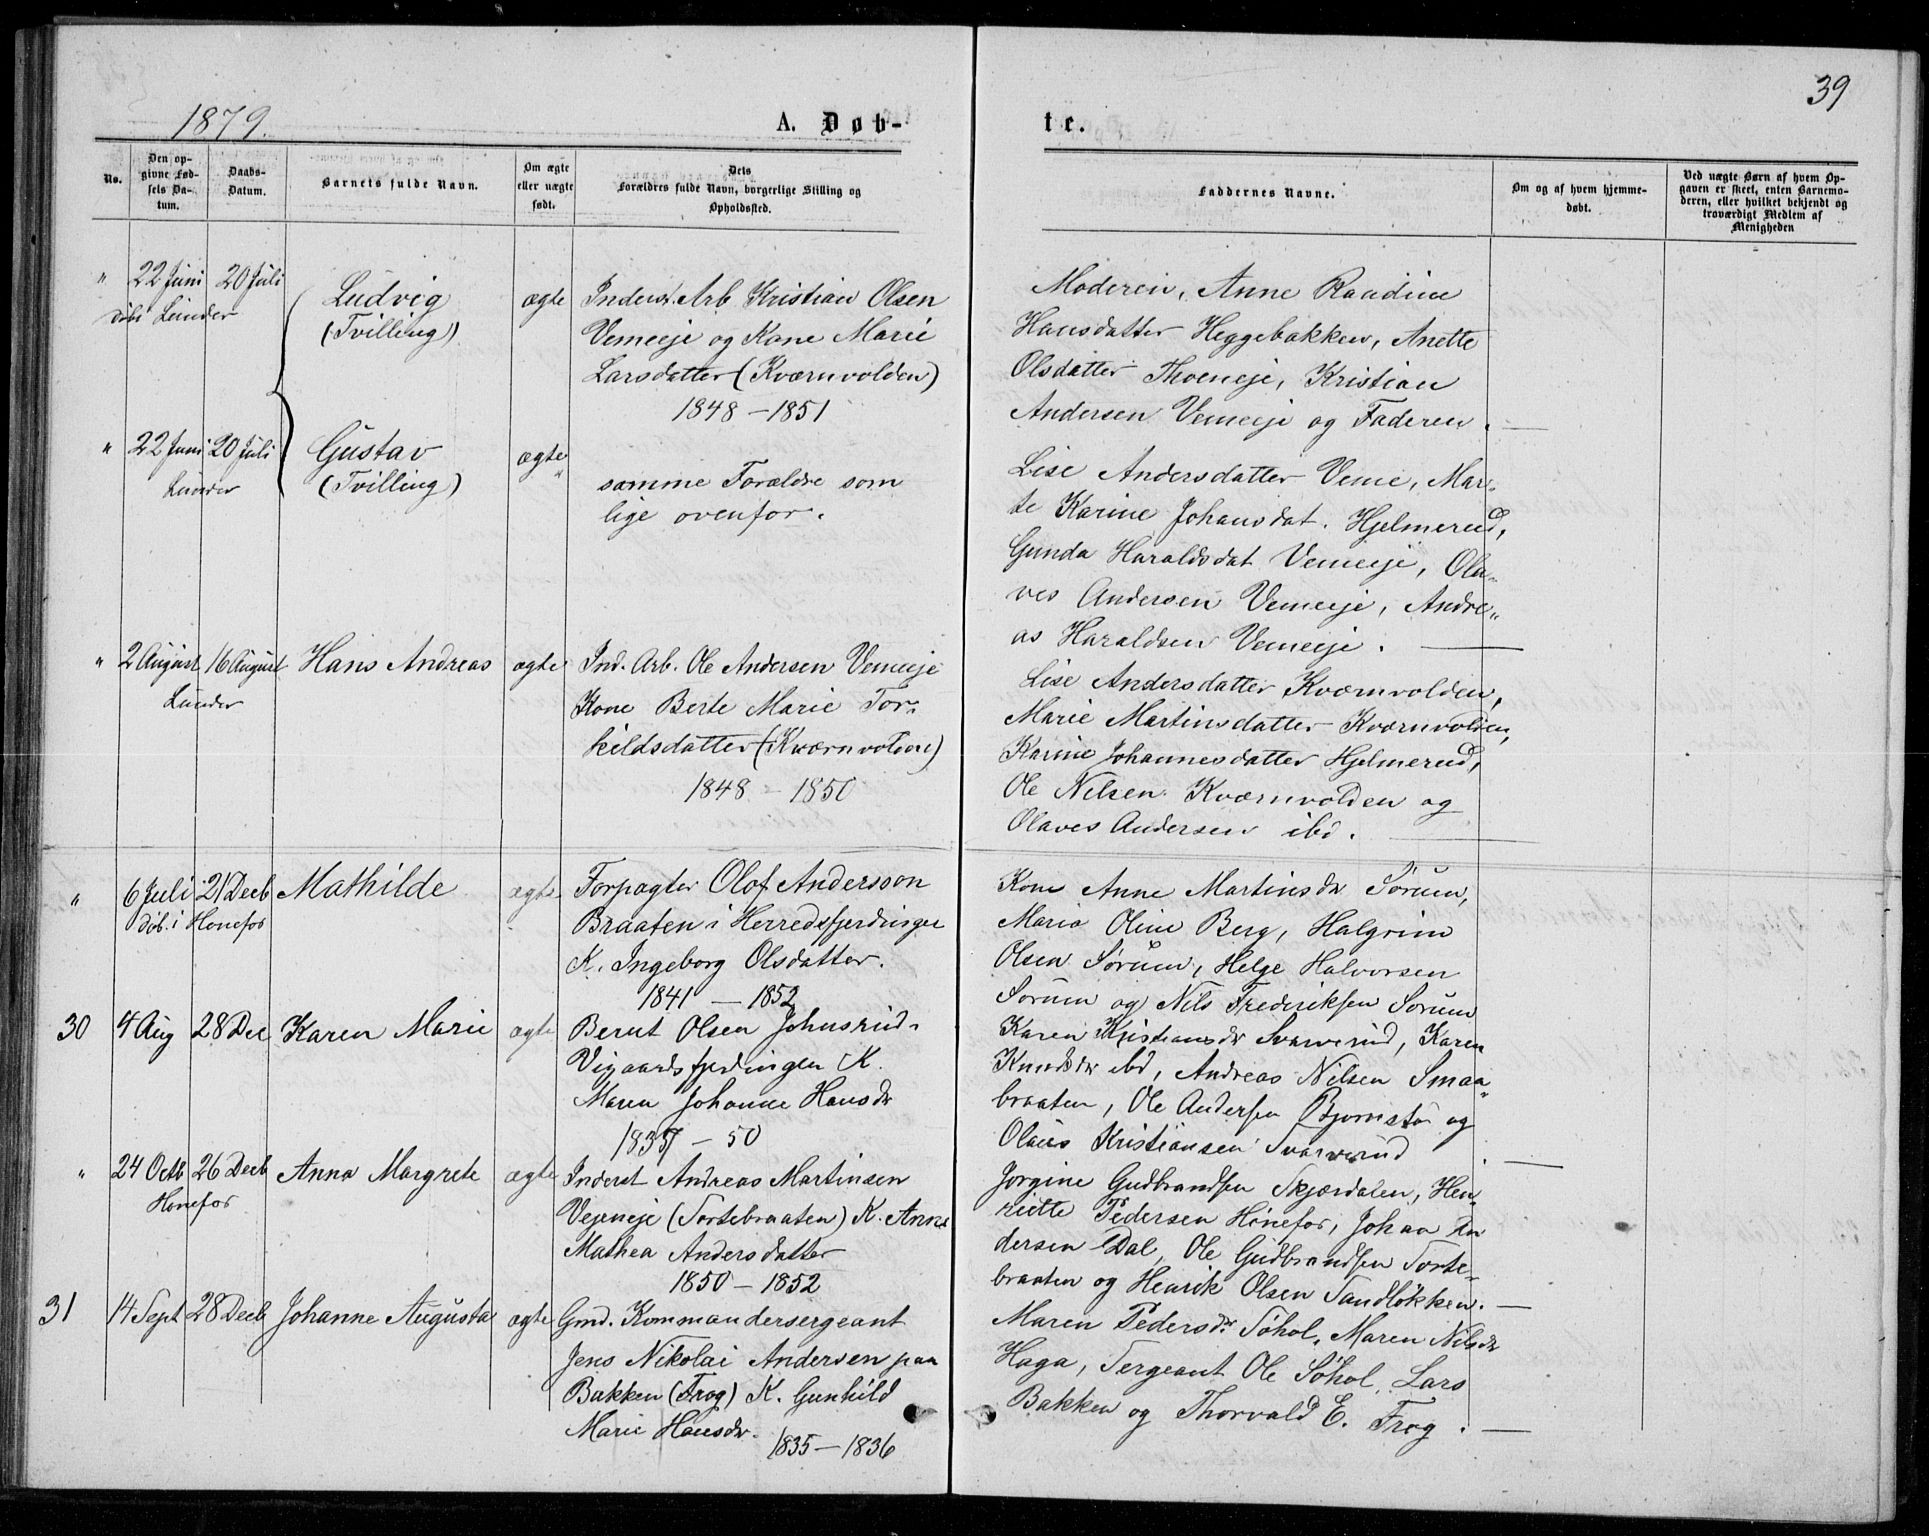 39
1879. A. Døb- te.
No.
Den op-
givne Fød-
sels Da-
tum.
Daabs-
Datum.
Barnets fulde Navn.
Om ægte
eller uægte
født.
Dets
Forældres fulde Navn, borgerlige Stilling og
Opholdssted.
Faddernes Navne.
Om og af hvem hjemme-
døbt.
Ved uægte Børn af hvem Op-
gaven er skeet, enten Barnemo-
deren, eller hvilket bekjendt og
troværdigt Medlem af
Menigheden
" 22 Juni 20 Juli
døbt Lunder
Ludvig
(Tvilling)
ægte
Inderst. Arb. Kristian Olsen
Vemeeje og Kone Marie
Larsdatter (Kværnvolden)
1848 - 1851
Moderen, Anne Randine
Hansdatter Heggebakken, Anette
Olsdatter Thoeneje, Kristian
Andersen Vemeeje og Faderen.
" 22 Juni 20 Juli
Lunder
Gustav
(Tvilling)
ægte
"
samme Forældre som
lige ovenfor.
Lise Andersdatter Veme, Mar-
te Karine Johansdat. Hjelmerud,
Gunda Haraldsdat Vemeeje, Ola-
ves Andersen Vemeeje, Andre-
as Haraldsen Vemeeje.
" 2 August 16 August
Lunder
Hans Andreas
ægte
Ind. Arb. Ole Andersen Vemeeje
Kone Berte Marie Tor-
kildsdatter (Kværnvolden)
1848 - 1850
Lise Andersdatter Kværnvolden,
Marie Martinsdatter Kværnvolden,
Karine Johannesdatter Hjelmerud,
Ole Nilsen Kværnvolden og
Olaves Andersen ibd.
" 6 Juli 21 Decb
døb. i Hønefos
Mathilde
ægte
Forpagter Olof Andersson
Braaten i Herredsfjerdingen
K. Ingeborg Olsdatter.
1841 - 1852
Kone Anne Martinsdr Sørum,
Maria Oline Berg, Halgrim
Olsen Sørum, Helge Halvorsen
Sørum og Nils Frederiksen Sørum
30 4 Aug 28 Dec
Karen Marie
ægte
Bernt Olsen Johnsrud-
Vigaardsfjerdingen K.
Maren Johanne Hansdr
1837 - 50
Karen Kristiansdr Svarverud, Karen
Knudsdr ibd, Andreas Nilsen Smaa-
braaten, Ole Andersen Bjørnstø og
Olaus Kristiansen Svarverud.
" 24 Octb 26 Decb
Hønefos
Anna Margrete
ægte
Inderst Andreas Martinsen
Vejeneje (Tortebraaten) K. Anne
Mathea Andersdatter
1850 - 1852
Jørgine Gudbrandsen Skjærdalen, Hen-
riette Pedersen Hønefos, Johan An
dersen Dal, Ole Gudbrandsen Torte-
braaten og Henrik Olsen Tandløkken.
31 14 Sept 28 Decb
Johanne Augusta
ægte
Gmd. Kommandersergeant
Jens Nikolai Andersen paa
Bakken (Frog) K. Gunhild
Marie Hansdr.
1835 - 1836
Maren Pedersdr. Søhol, Maren Nilsdr
Haga, Sergeant Ole Søhol, Lars
Bakken og Thorvald E. Frog.